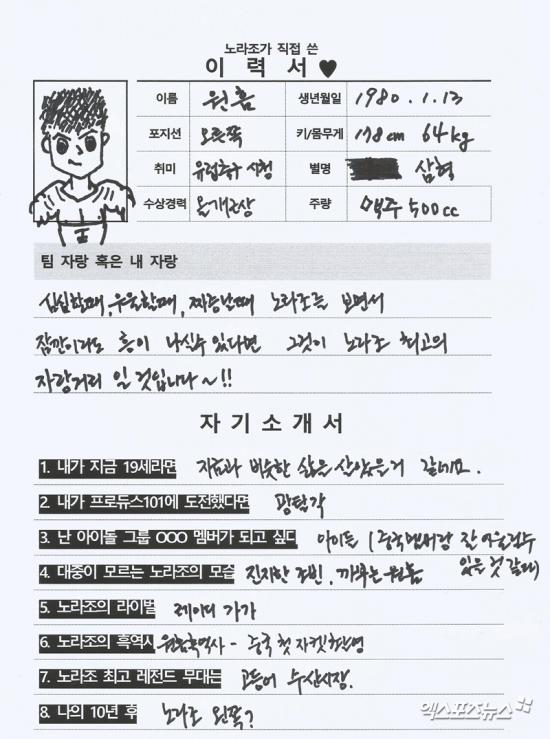 노라조가 직접 쓴
이 력 서 ♥
이름 원흠 생년월일 1980. 1. 13
포지션 오른쪽 키/몸무게 178cm 64kg
취미 유럽축구 시청 별명 삼혁
수상경력 올개근상 주량 맥주 500cc
팀 자랑 혹은 내 자랑
심심할때, 우울할때, 짜증날때 노라조를 보면서
잠깐이라도 흥이 나실수 있다면 그것이 노라조 최고의
자랑거리 일 것입니다~!!
자 기 소 개 서
1. 내가 지금 19세라면 지금과 비슷한 삶을 살았을거 같네요.
2. 내가 프로듀스101에 도전했다면 광탈각
3. 난 아이돌 그룹 OOO 멤버가 되고 싶다 아이들 (중국멤버랑 잘 어울릴수
있을 것 같애)
4. 대중이 모르는 노라조의 모습 진지한 조빈, 까부는 원흠
5. 노라조의 라이벌 레이디 가가
6. 노라조의 흑역사 원흠흑역사 - 중국 첫 자켓촬영
7. 노라조 최고 레전드 무대는 고등어 수산시장.
8. 나의 10년 후 노라조 왼쪽?
엑스포츠뉴스